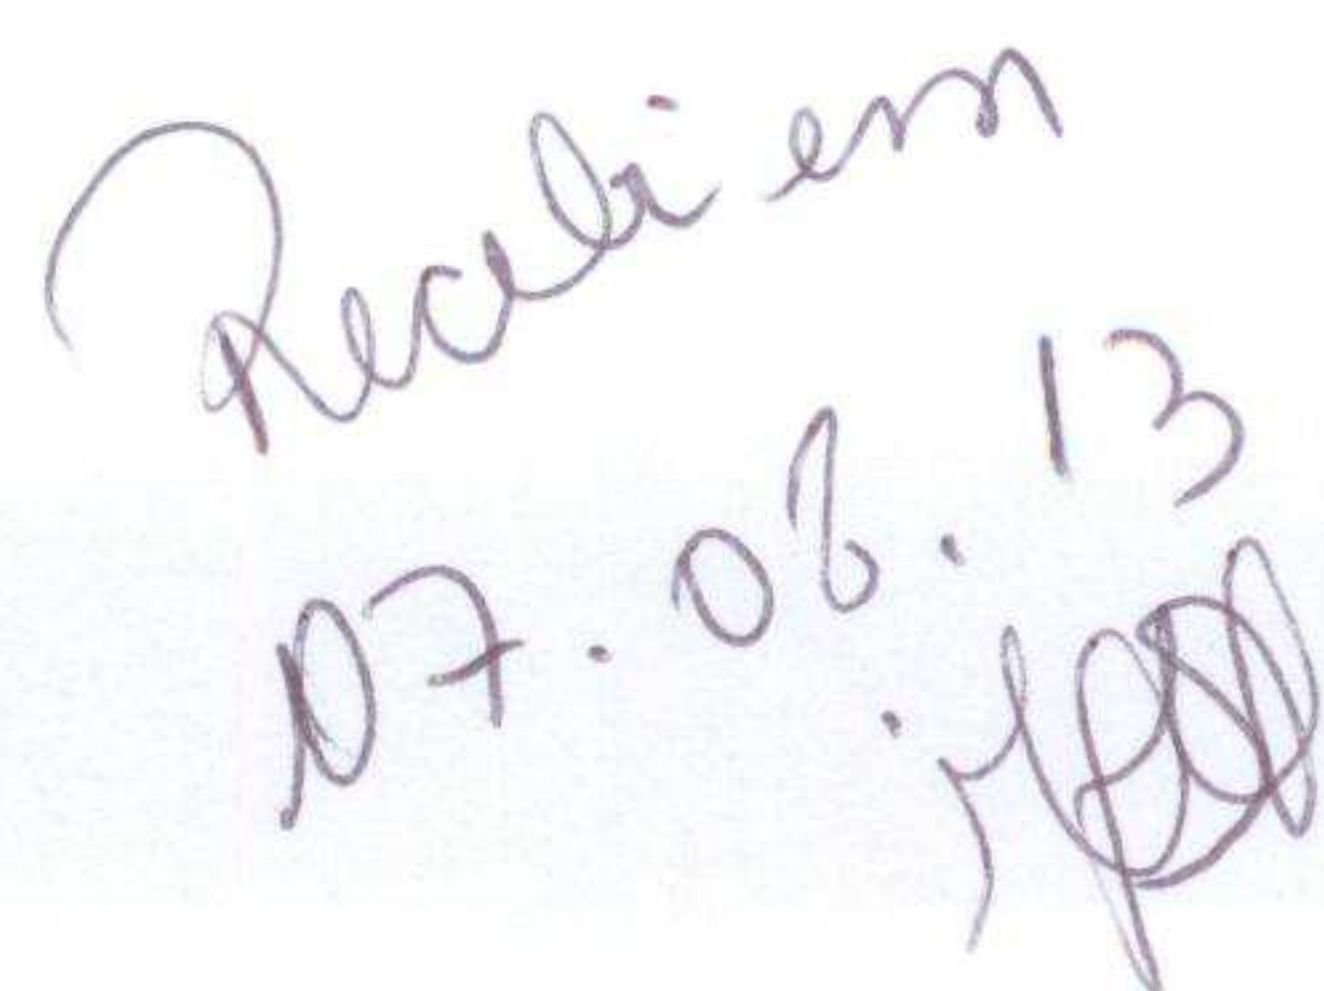 Recebi em
07.08.13